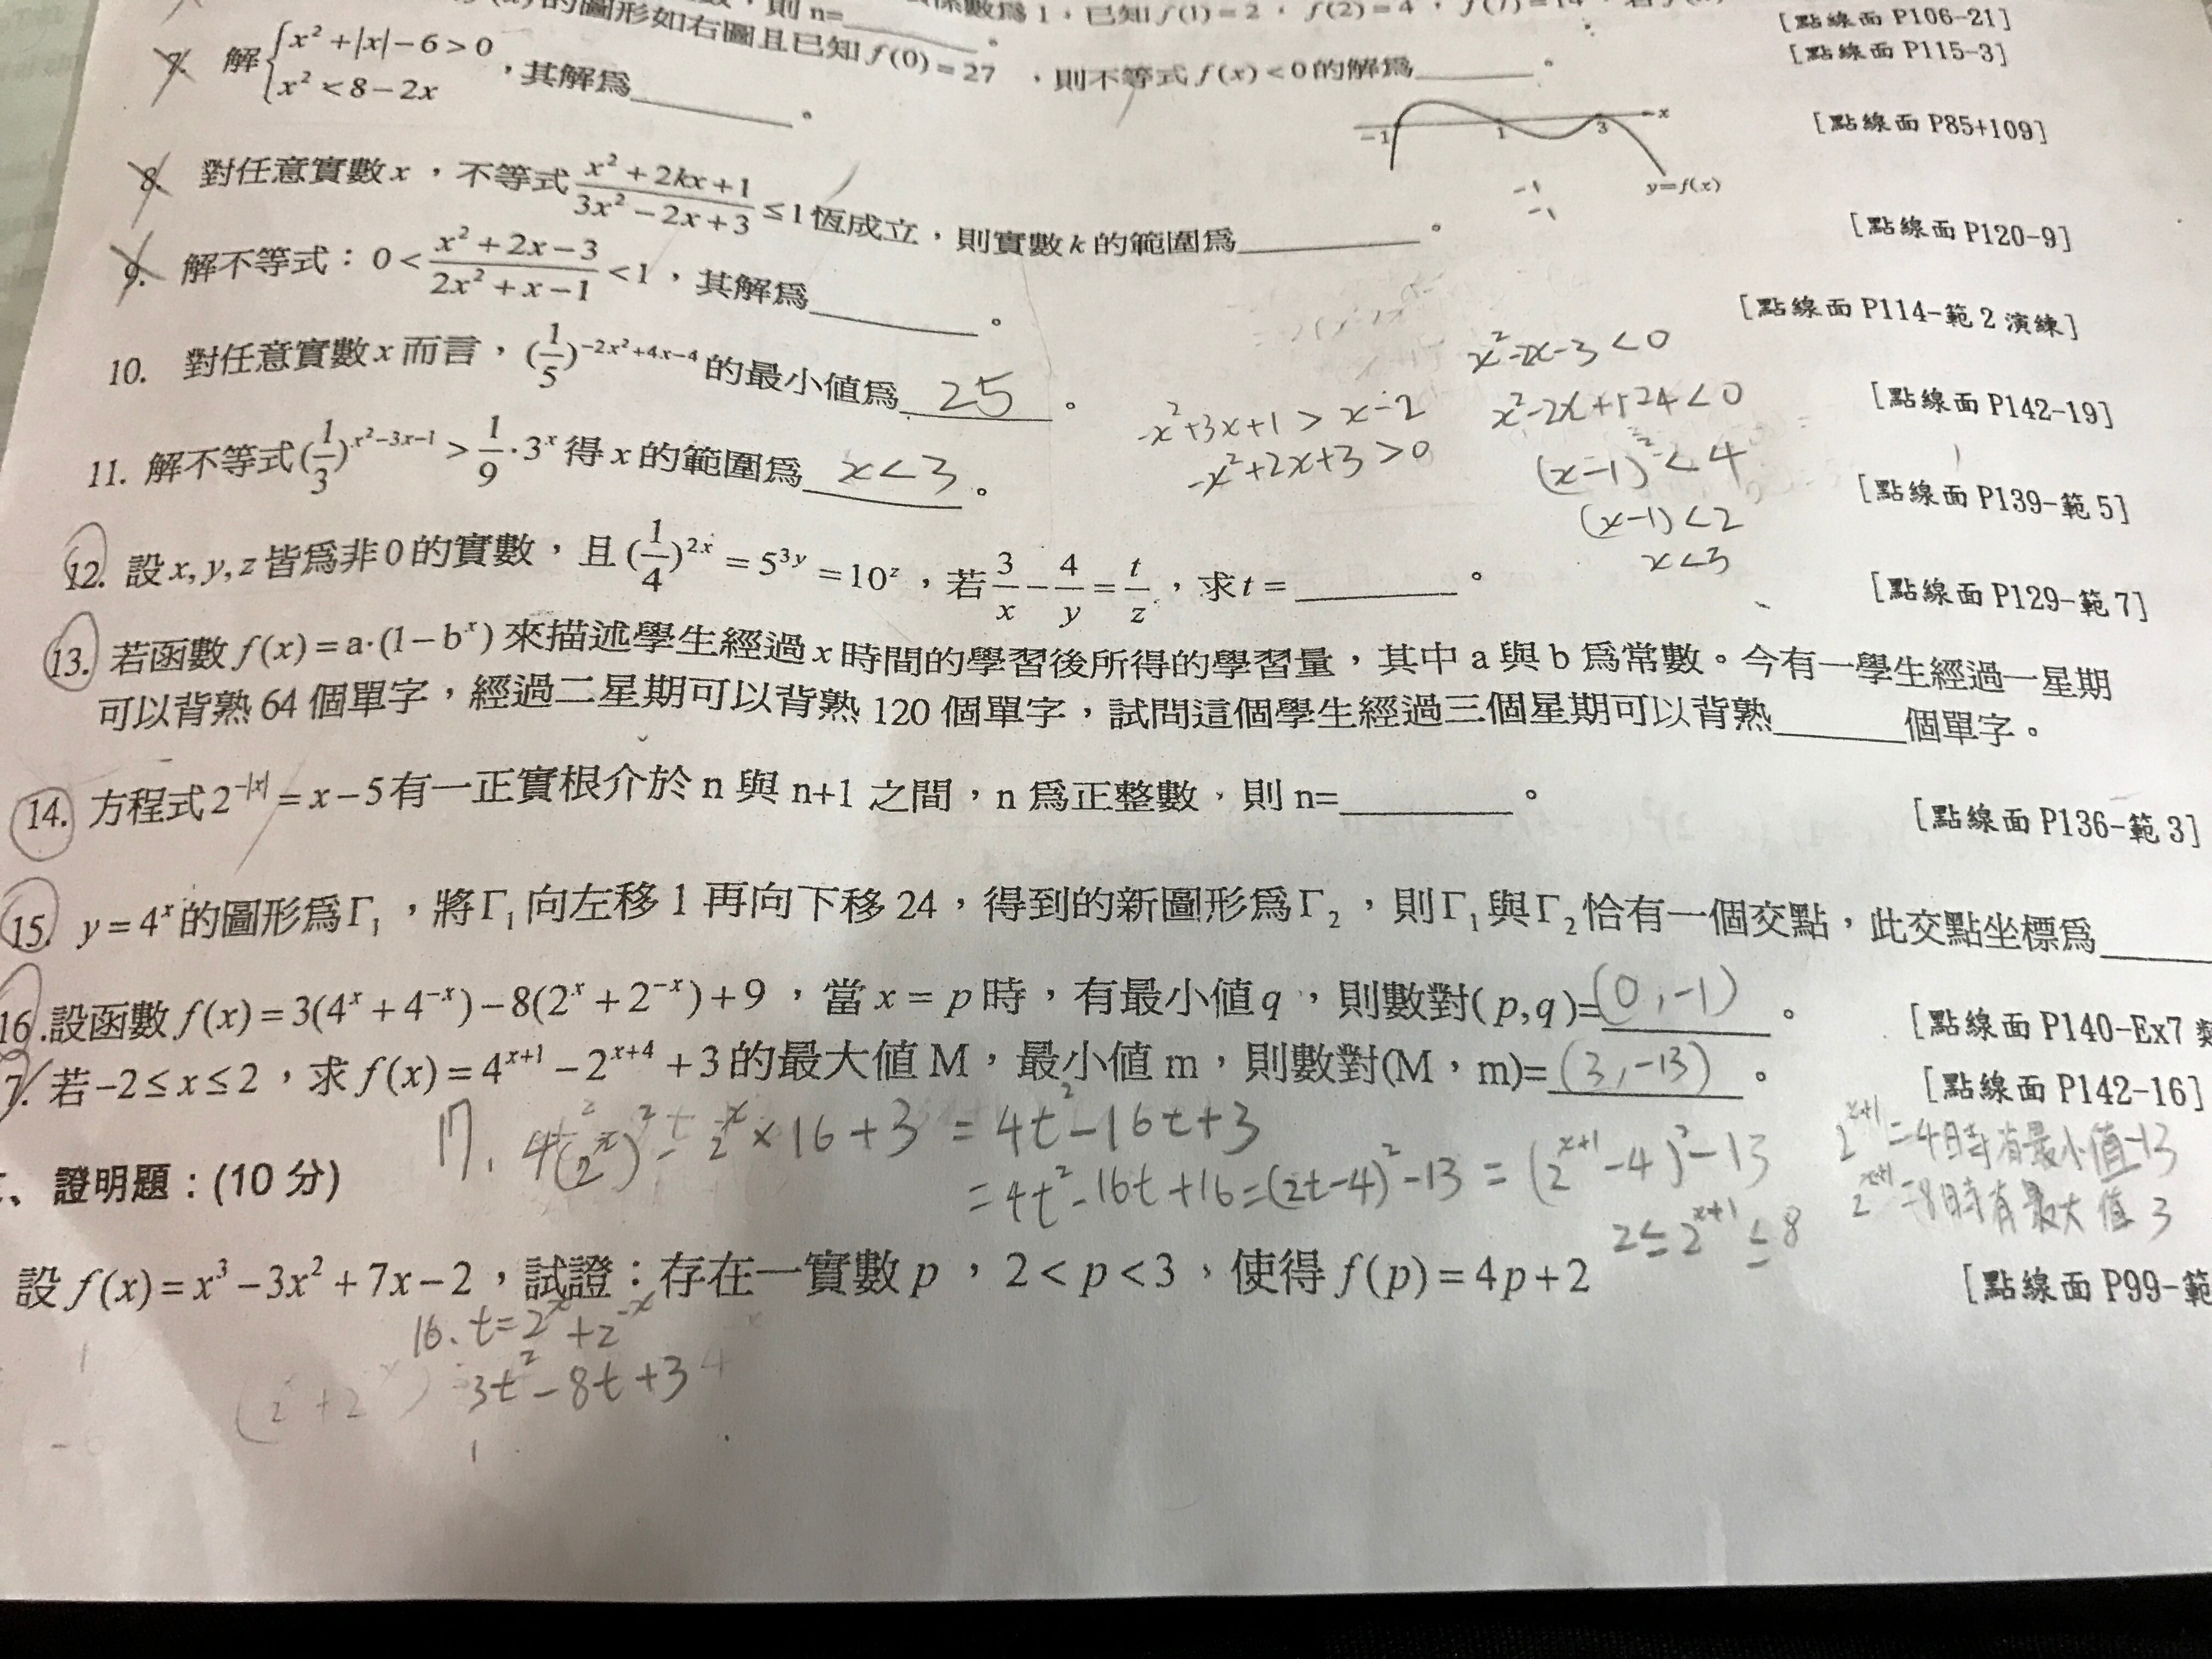 則n=______。 係數為1，已知f(1)=2，f(2)=4，f(7)=14，若f( [點線面 P106-21]
的圖形如右圖且已知f(0)=27，則不等式f(x)<0的解為______。 [點線面 P115-3]
7. 解{x²+|x|-6>0, x²<8-2x，其解為______。 [點線面 P85+109]
-1 1 3 x
y=f(x)
8. 對任意實數x，不等式(x²+2kx+1)/(3x²-2x+3)≤1恆成立，則實數k的範圍為______。 [點線面 P120-9]
9. 解不等式：0<(x²+2x-3)/(2x²+x-1)<1，其解為______。 [點線面 P114-範2演練]
10. 對任意實數x而言，(1/5)^(-2x²+4x-4)的最小值為 25 。 [點線面 P142-19]
11. 解不等式(1/3)^(x²-3x-1)>1/9·3^x得x的範圍為 x<3 。 [點線面 P139-範5]
-x²+3x+1>x-2
-x²+2x+3>0
x²-2x-3<0
x²-2x+1-4<0
(x-1)²<4
(x-1)<2
x<3
12. 設x,y,z皆為非0的實數，且(1/4)^(2x)=5^(3y)=10^z，若3/x-4/y=t/z，求t=______。 [點線面 P129-範7]
13. 若函數f(x)=a·(1-b^x)來描述學生經過x時間的學習後所得的學習量，其中a與b為常數。今有一學生經過一星期
可以背熟64個單字，經過二星期可以背熟120個單字，試問這個學生經過三個星期可以背熟______個單字。
14. 方程式2^(-|x|)=x-5有一正實根介於n與n+1之間，n為正整數，則n=______。 [點線面 P136-範3]
15. y=4^x的圖形為Γ₁，將Γ₁向左移1再向下移24，得到的新圖形為Γ₂，則Γ₁與Γ₂恰有一個交點，此交點坐標為______
16.設函數f(x)=3(4^x+4^(-x))-8(2^x+2^(-x))+9，當x=p時，有最小值q，則數對(p,q)= (0,-1) 。 [點線面 P140-Ex7
7. 若-2≤x≤2，求f(x)=4^(x+1)-2^(x+4)+3的最大值M，最小值m，則數對(M，m)= (3,-13) 。 [點線面 P142-16]
17. 4(2^x)²-2^x×16+3=4t²-16t+3
=4t²-16t+16=(2t-4)²-13=(2^(x+1)-4)²-13
2≤2^(x+1)≤8
2^(x+1)=4時有最小值-13
2^(x+1)=8時有最大值3
、證明題：(10分)
設f(x)=x³-3x²+7x-2，試證：存在一實數p，2<p<3，使得f(p)=4p+2 [點線面 P99-範
16. t=2^x+2^(-x)
3t²-8t+3